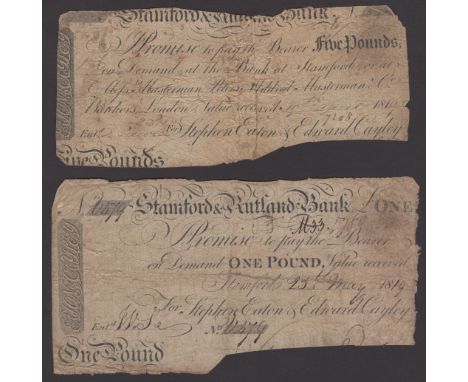 Stamford & Rutland Bank
I Promise to pay the Bearer Five Pounds,
on Demand at the Bank at Stamford or at
Masterman Peters Mildred Masterman & Co
Bankers London Value received 1814
7208
Entd For Stephen Eaton & Edward Cayley
Five Pounds
No Stamford & Rutland Bank £ ONE
I Promise to pay the Bearer
on Demand ONE POUND, Value received
Stamford 25 May 1814
For Stephen Eaton & Edward Cayley
Entd No
One Pound